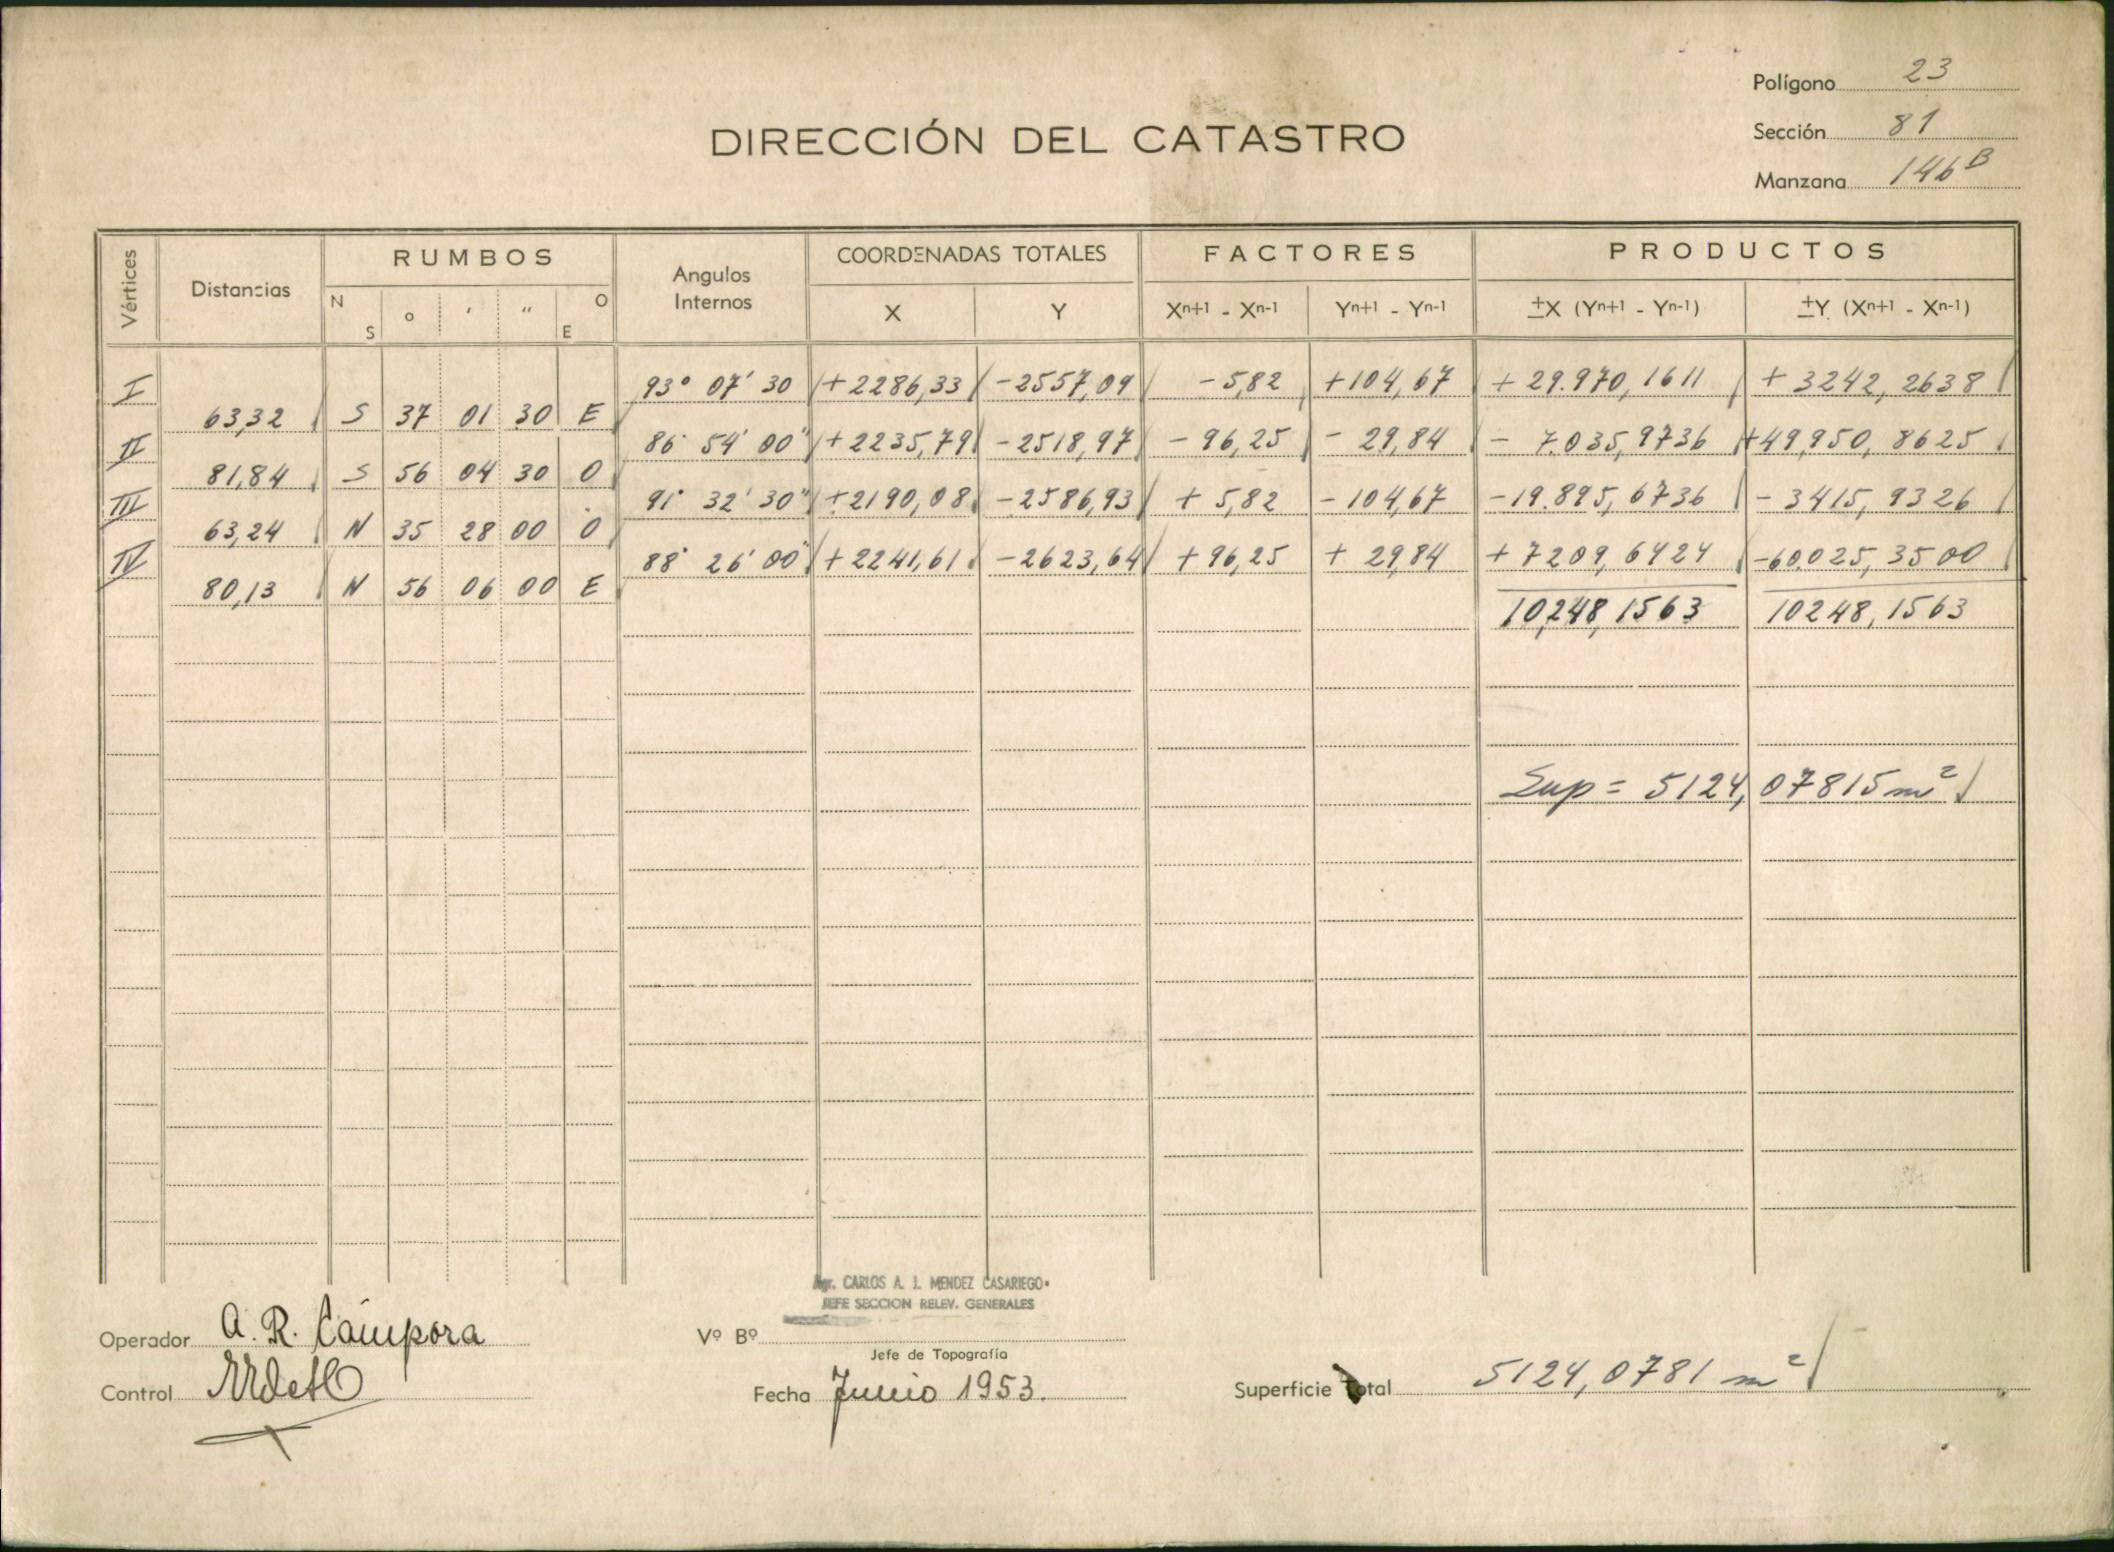 Polígono 23
Sección 81
Manzana 146 B
DIRECCIÓN DEL CATASTRO
Vértices Distancias RUMBOS Angulos Internos COORDENADAS TOTALES FACTORES PRODUCTOS
N S o ' " O E X Y Xn+1 - Xn-1 Yn+1 - Yn-1 ±X (Yn+1 - Yn-1) ±Y (Xn+1 - Xn-1)
I 93° 07' 30 +2286,33 -2557,09 -5,82 +104,67 +29.970,1611 +3242,2638
63,32 S 37 01 30 E
II 86° 54' 00" +2235,79 -2518,97 -96,25 -29,84 -7.035,9736 +49,950,8625
81,84 S 56 04 30 O
III 91° 32' 30" +2190,08 -2586,93 +5,82 -104,67 -19.895,6736 -3415,9326
63,24 N 35 28 00 O
IV 88° 26' 00" +2241,61 -2623,64 +96,25 +29,84 +7209,6424 -60.025,3500
80,13 N 56 06 00 E
10,248,1563 10248,1563
Sup = 5124,07815 m²
Agr. CARLOS A. J. MENDEZ CASARIEGO
JEFE SECCION RELEV. GENERALES
Operador A. R. Cámpora Vº Bº
Jefe de Topografía
Control Fecha Junio 1953. Superficie Total 5124,0781 m²